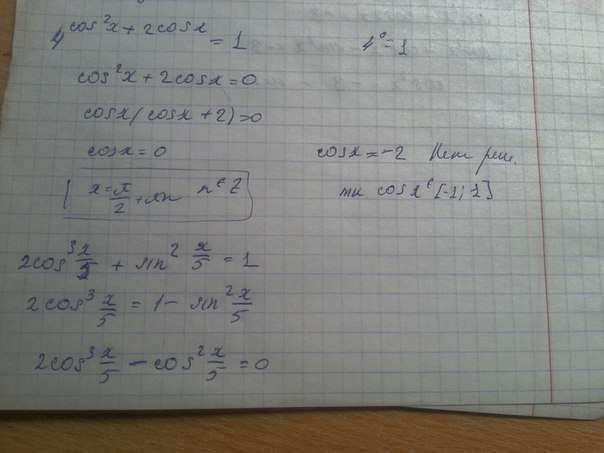 4^{cos²x + 2cosx} = 1 4⁰ = 1
cos²x + 2cosx = 0
cosx(cosx + 2) = 0
cosx = 0 cosx = -2 Нет реше.
x = π/2 + πn n ∈ Z тк cosx ∈ [-1; 1]
2cos³ x/5 + sin² x/5 = 1
2cos³ x/5 = 1 - sin² x/5
2cos³ x/5 - cos² x/5 = 0